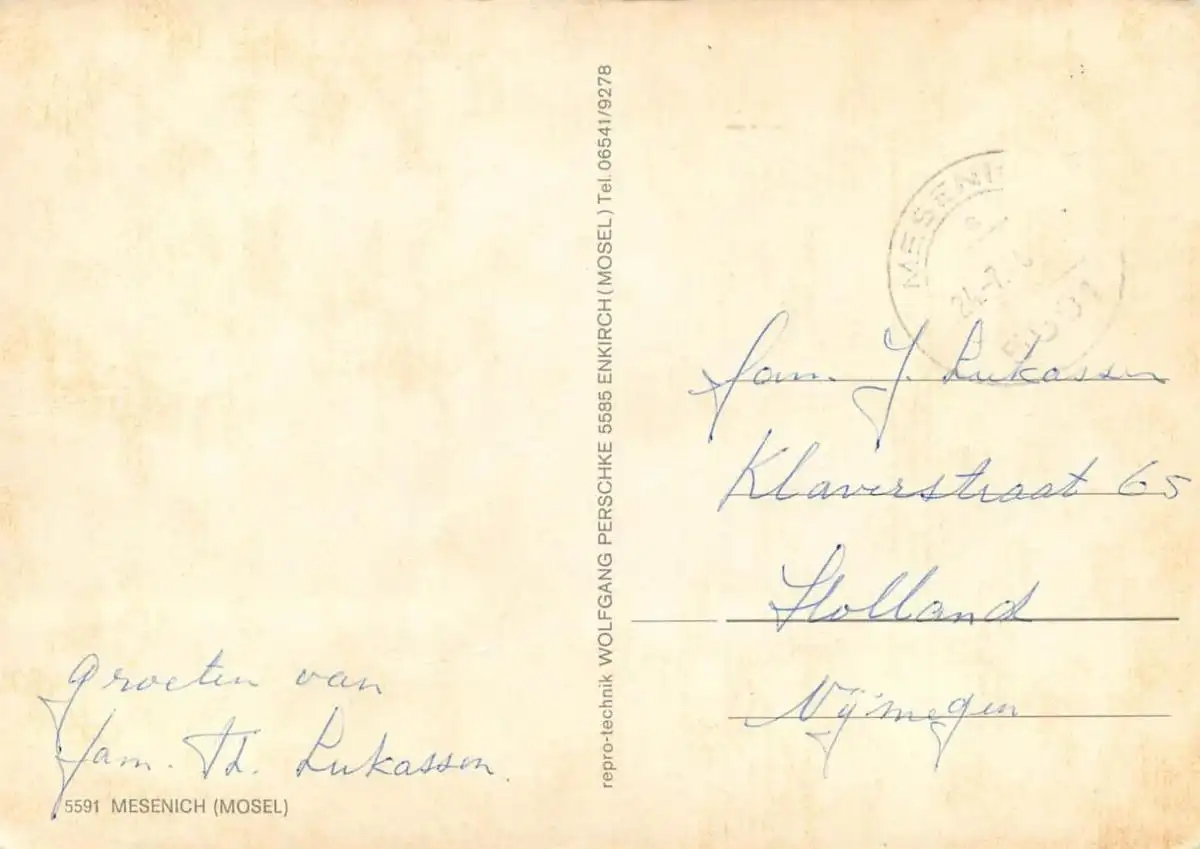 groeten van
fam. Th. Lukassen.
5591 MESENICH (MOSEL)
repro-technik WOLFGANG PERSCHKE 5585 ENKIRCH (MOSEL) Tel. 06541/9278
MESENI
5591
Fam. J. Lukassen
Klaverstraat 65
Holland
Nijmegen